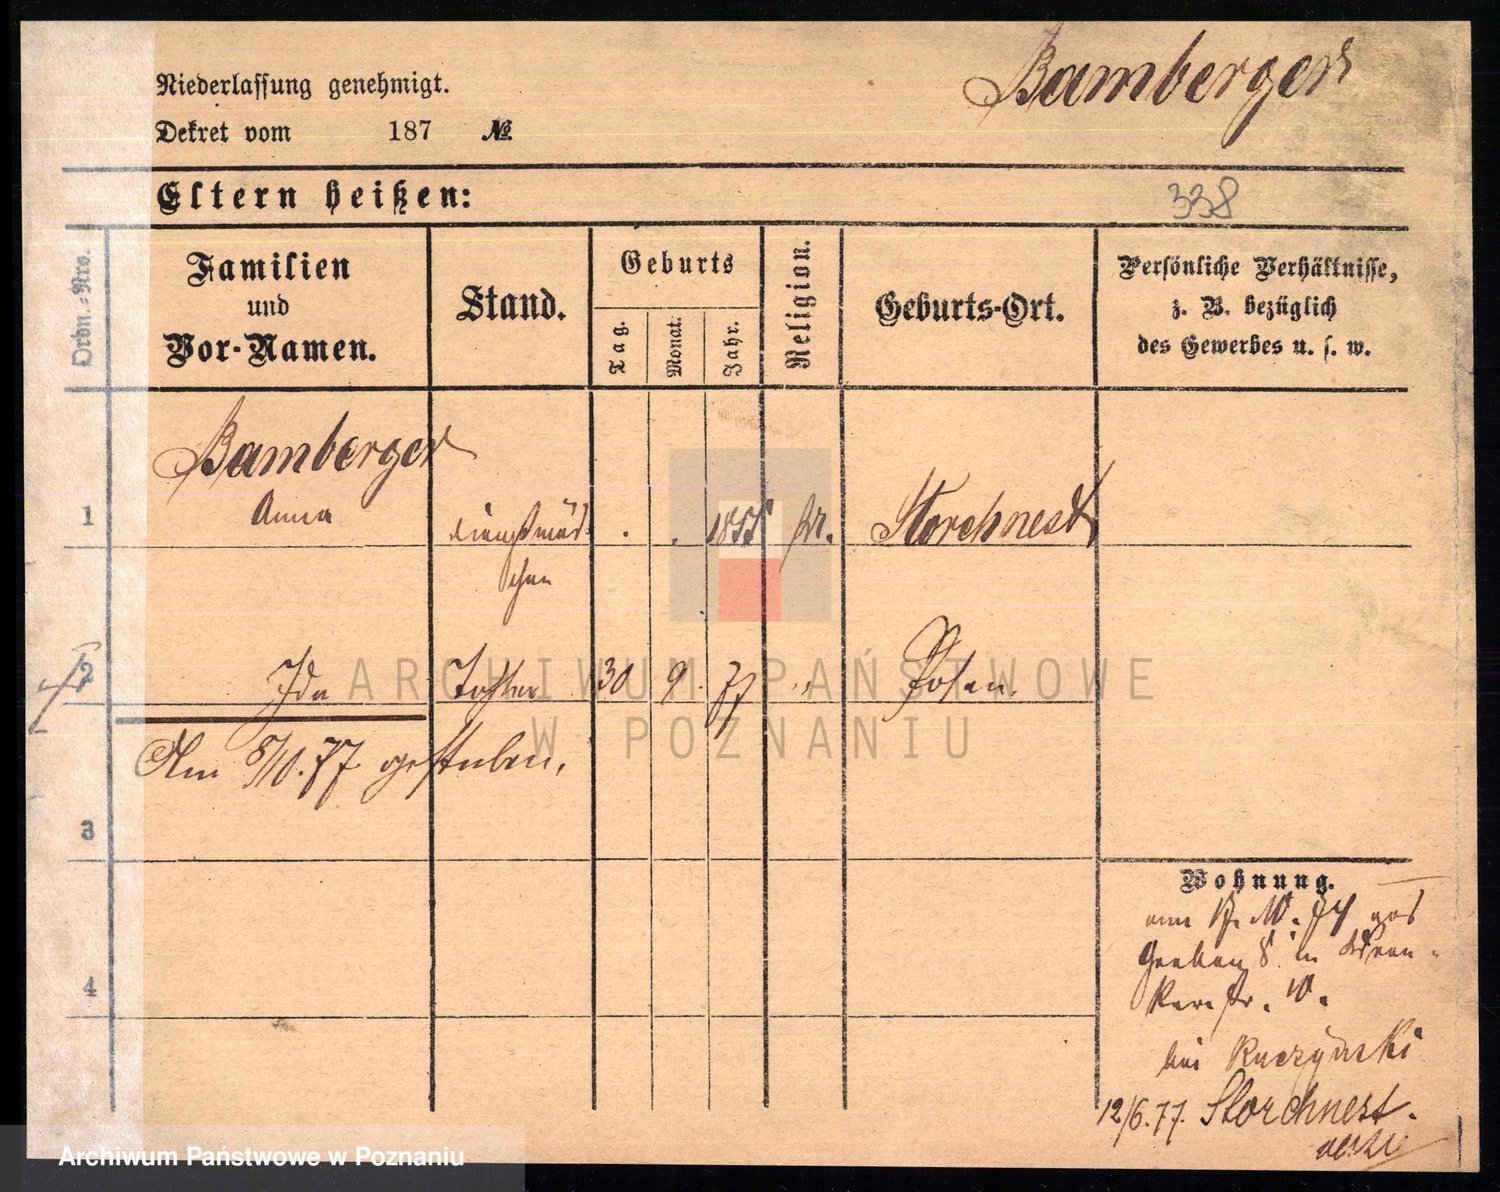 Bamberger
Niederlassung genehmigt.
Dekret vom 187 №
338
Eltern heißen:
Ordn.-Nro.
Familien
und
Vor-Namen.
Stand.
Geburts
Tag.
Monat.
Jahr.
Religion.
Geburts-Ort.
Persönliche Verhältnisse,
z. B. bezüglich
des Gewerbes u. s. w.
Bamberger
1 Anna Dienstmäd- . . 1855 Storchnest
chen
2 Ida Tochter 30 9. 77 " Posen.
ARCHIWUM PAŃSTWOWE
W POZNANIU
Am 8/10. 77. gestorben.
3
Wohnung.
Graben 8 in
4
str. 10.
bei Ruczynski
12/6. 77. Storchnest.
Archiwum Państwowe w Poznaniu